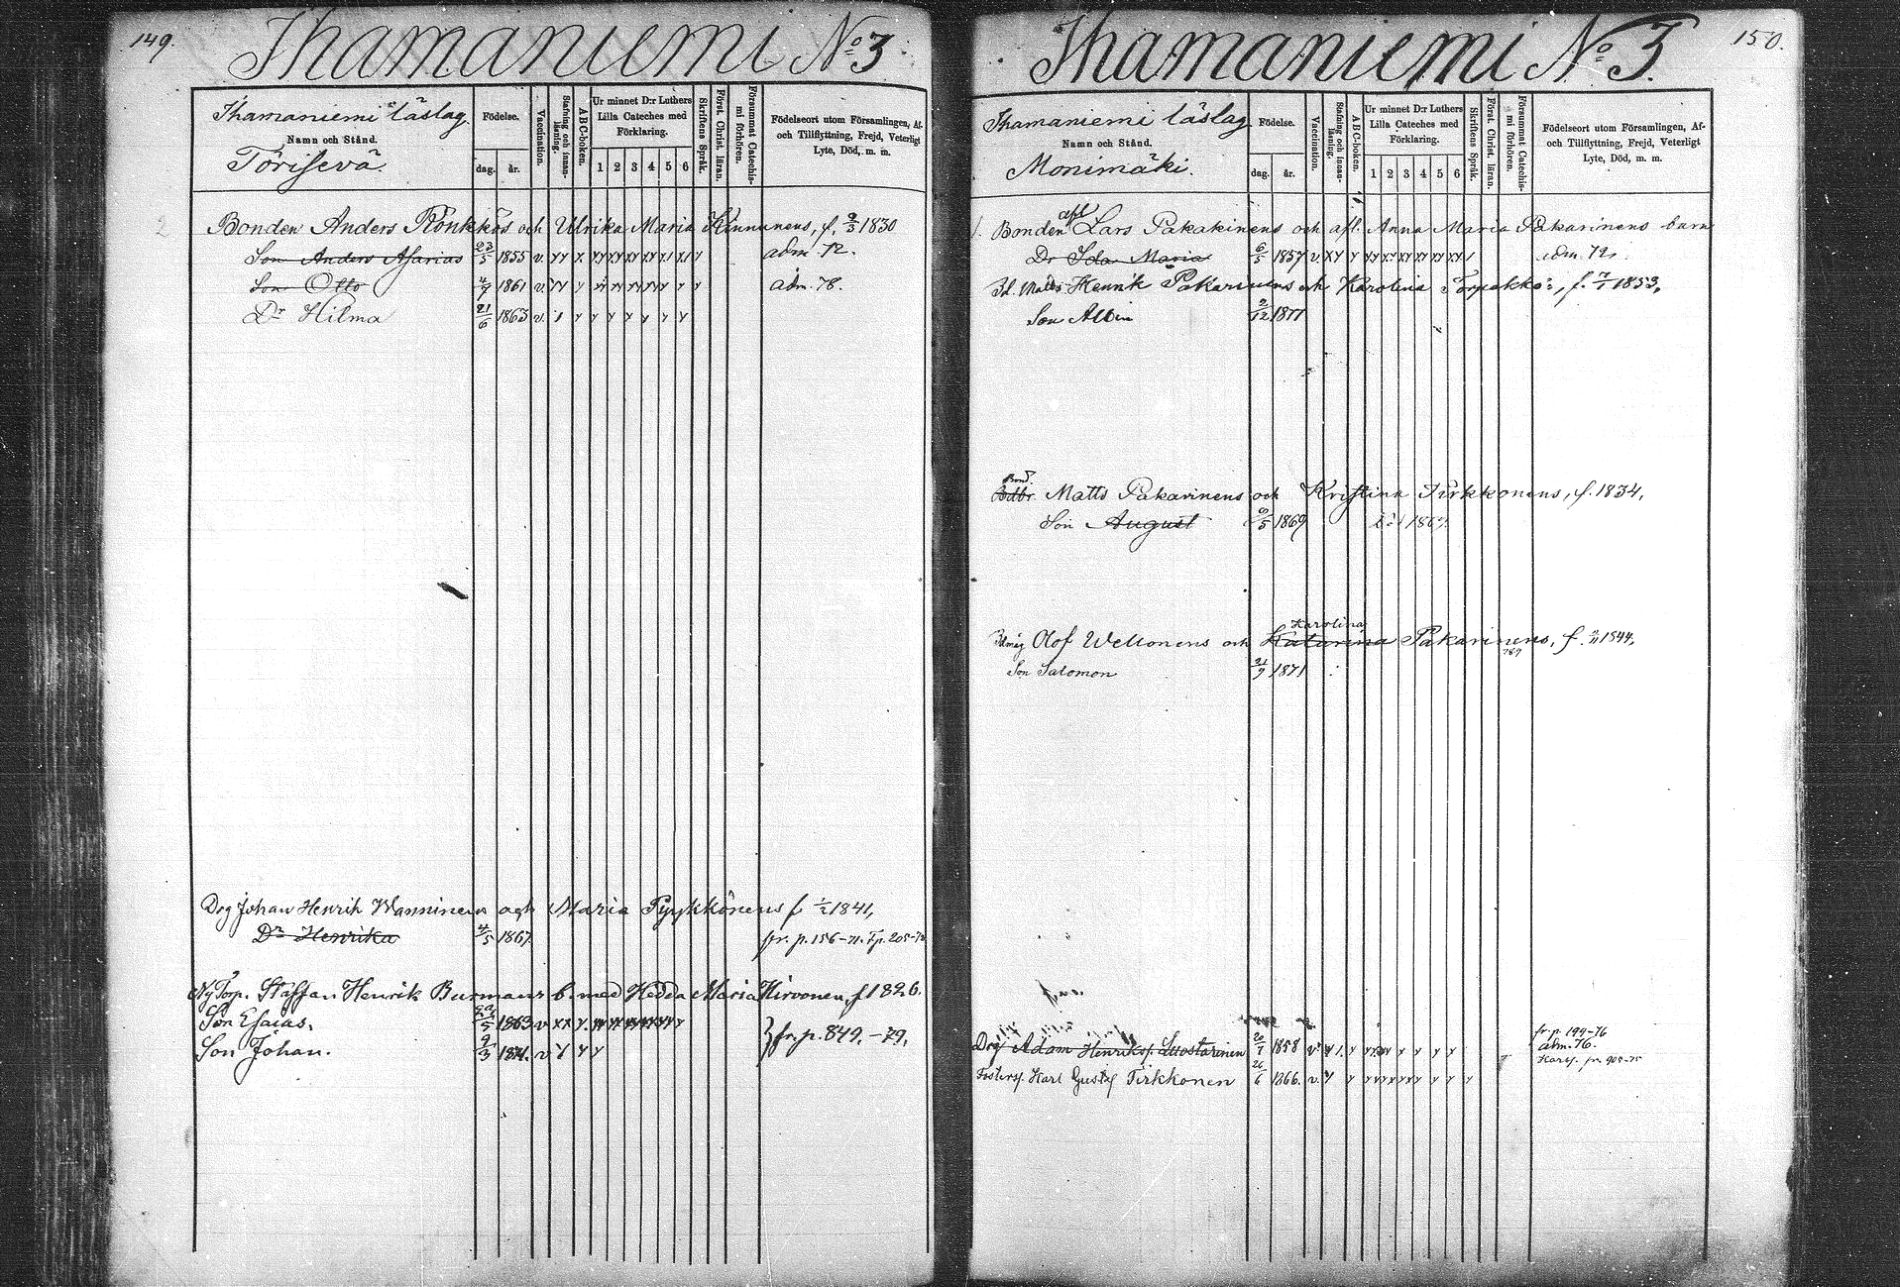 149.
Ihamaniemi No 3
Ihamaniemi läslag.
Namn och Stånd.
Törisevä.
Födelse.
dag. år.
Vaccination.
Stafning och innan-läsning.
ABC-boken.
Ur minnet D:r Luthers
Lilla Cateches med
Förklaring.
1 2 3 4 5 6
Skriftens Språk.
Först. Christ. läran.
Försummat Catechis-mi förhören.
Födelseort utom Församlingen, Af-
och Tillflyttning, Frejd, Veterligt
Lyte, Död, m. m.
2
Bonden Anders Rönkkös och Ulrika Maria Kinnunens, f. 9/3 1830
Son Anders Asarias 23/5 1855 v. adm. 72.
Son Otto 4/7 1861 v. adm. 78.
Dr Hilma 21/6 1863 v.
Drg Johan Henrik Wanninen och Maria Pyykkönens f 1/2 1841,
Dr Henrika 4/5 1867 fr. p. 156-71. T.p. 205-72
Ny Torp. Staffan Henrik Burmans b. med Hedda Maria Hirvonen, f 1826.
Son Esaias. 22/5 1863 v
Son Johan. 9/3 1871. v fr. p. 849.-79,
150.
Ihamaniemi No 3.
Ihamaniemi läslag
Namn och Stånd.
Monimäki.
Födelse.
dag. år.
Vaccination.
Stafning och innan-läsning.
ABC-boken.
Ur minnet D:r Luthers
Lilla Cateches med
Förklaring.
1 2 3 4 5 6
Skriftens Språk.
Först. Christ. läran.
Försummat Catechis-mi förhören.
Födelseort utom Församlingen, Af-
och Tillflyttning, Frejd, Veterligt
Lyte, Död, m. m.
1. Bonden afl Lars Pakakinens och afl. Anna Maria Pakarinens barn
Dr Ida Maria 6/5 1857 v. adm. 72.
Henrik Pakarinens och Karolina f. 7/1 1853,
Son Albin 2/12 1877
Bond.
Bdbr. Matts Pakarinens och Kristina Tirkkonens, f. 1834,
Son August 9/5 1869
Karolina
Olof Weltonens och Katarina Pakarinens, f. 1844,
Son Salomon 21/9 1871
fr p. 194-76
Drg Adam Henriksf Luostarinen 20/7 1858 v adm. 76.
Fosters. Karl Gustaf Tirkkonen 26/6 1866. v.